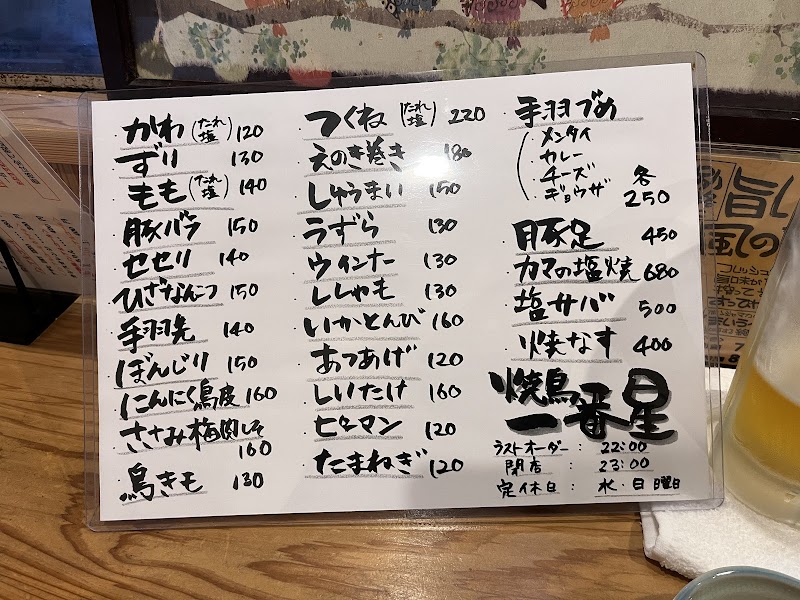 かわ(たれ 塩) 120
ずり 130
もも(たれ 塩) 140
豚バラ 150
セセリ 140
ひざなんこつ 150
手羽先 140
ぼんじり 150
にんにく鳥皮 160
ささみ梅肉しそ
160
鳥きも 130
つくね(たれ 塩) 220
えのき巻き 180
しゅうまい 150
うずら 130
ウィンナー 130
ししゃも 130
いかとんび 160
あつあげ 120
しいたけ 160
ピーマン 120
たまねぎ 120
手羽づめ
・メンタイ
・カレー
・チーズ
・ギョウザ
各
250
豚足 450
カマの塩焼 680
塩サバ 500
焼なす 400
焼鳥
一番星
ラストオーダー : 22:00
閉店 : 23:00
定休日 : 水・日曜日
旨し
風の